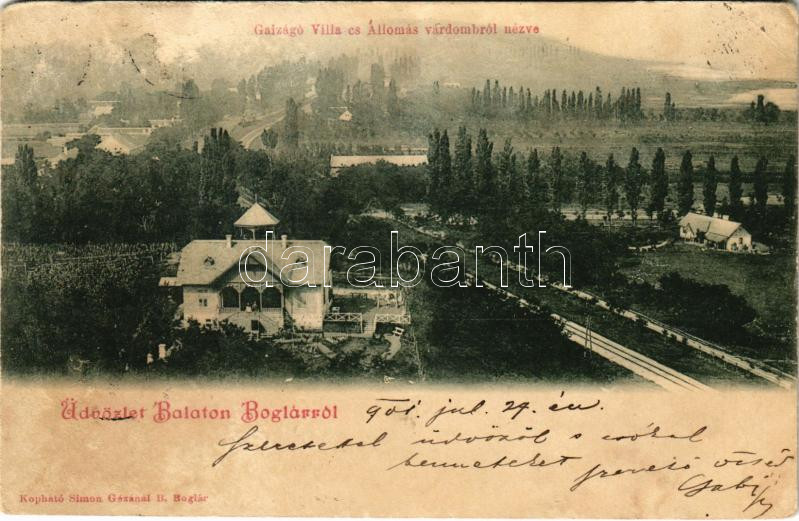 Gaizágó Villa és Állomás várdombról nézve
darabanth
Üdvözlet Balaton Boglárról
901 jul. 29. én.
Szeretettel üdvözöl s csókol
benneteket szerető öcséd
Gabi
Kopható Simon Gézánál B. Boglár